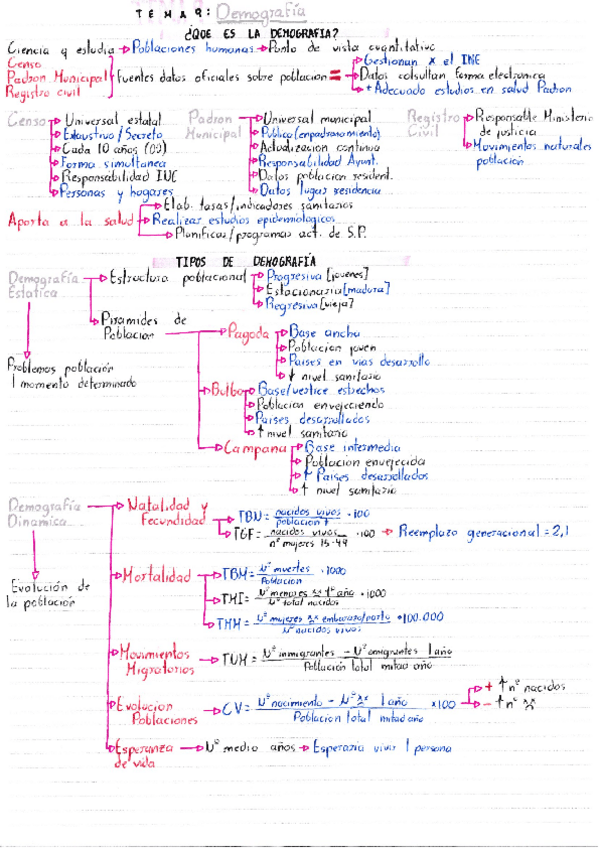 TEMA 9: Demografía
¿QUE ES LA DEMOGRAFIA?
Ciencia q estudia → Poblaciones humanas → Punto de vista cuantitativo
Censo
Padron Municipal
Registro civil
Fuentes datos oficiales sobre poblacion =
Gestionan x el INE
Datos consultan forma electronica
+ Adecuado estudios en salud Padron
Censo
Universal estatal
Exaustivo/Secreto
Cada 10 años (09)
Forma simultanea
Responsabilidad INE
Personas y hogares
Padron Municipal
Universal municipal
Publico (empadronamiento)
Actualizacion continua
Responsabilidad Ayunt.
Datos poblacion resident.
Datos lugar residencia
Registro Civil
Responsable Ministerio de justicia
Movimientos naturales poblacion
Aporta a la salud
Elab. tasas/indicadores sanitarios
Realizar estudios epidemiologicos
Planificar/programas act. de S.P.
TIPOS DE DEMOGRAFÍA
Demografía Estatica
Problemas población
1 momento determinado
Estructura poblacional
Progresiva [jovenes]
Estacionaria [madura]
Regresiva [vieja]
Piramides de Poblacion
Pagoda
Base ancha
Poblacion joven
Paises en vias desarrollo
↓ nivel sanitario
Bulbo
Base/vertice estrechos
Poblacion envejeciendo
Paises desarrollados
↑ nivel sanitario
Campana
Base intermedia
Poblacion envejecida
↑ Paises desarrollados
↑ nivel sanitario
Demografía Dinamica
Evolución de la población
Natalidad y Fecundidad
TBN = nacidos vivos / poblacion T · 100
TGF = nacidos vivos / nº mujeres 15-49 · 100 → Reemplazo generacional = 2,1
Mortalidad
TBM = Nº muertes / Poblacion · 1000
TMI = Nº menores xx 1º año / Nº total nacidos · 1000
TMM = Nº mujeres xx embarazo/parto / Nº nacidos vivos · 100.000
Movimientos Migratorios
TUM = Nº inmigrantes - Nº emigrantes 1 año / Población total mitad año
Evolucion Poblaciones
CV = Nº nacimiento - Nº xx 1 año / Poblacion total mitad año x100
+ ↑ nº nacidos
- ↑ nº xx
Esperanza de vida → Nº medio años → Esperaria vivir 1 persona